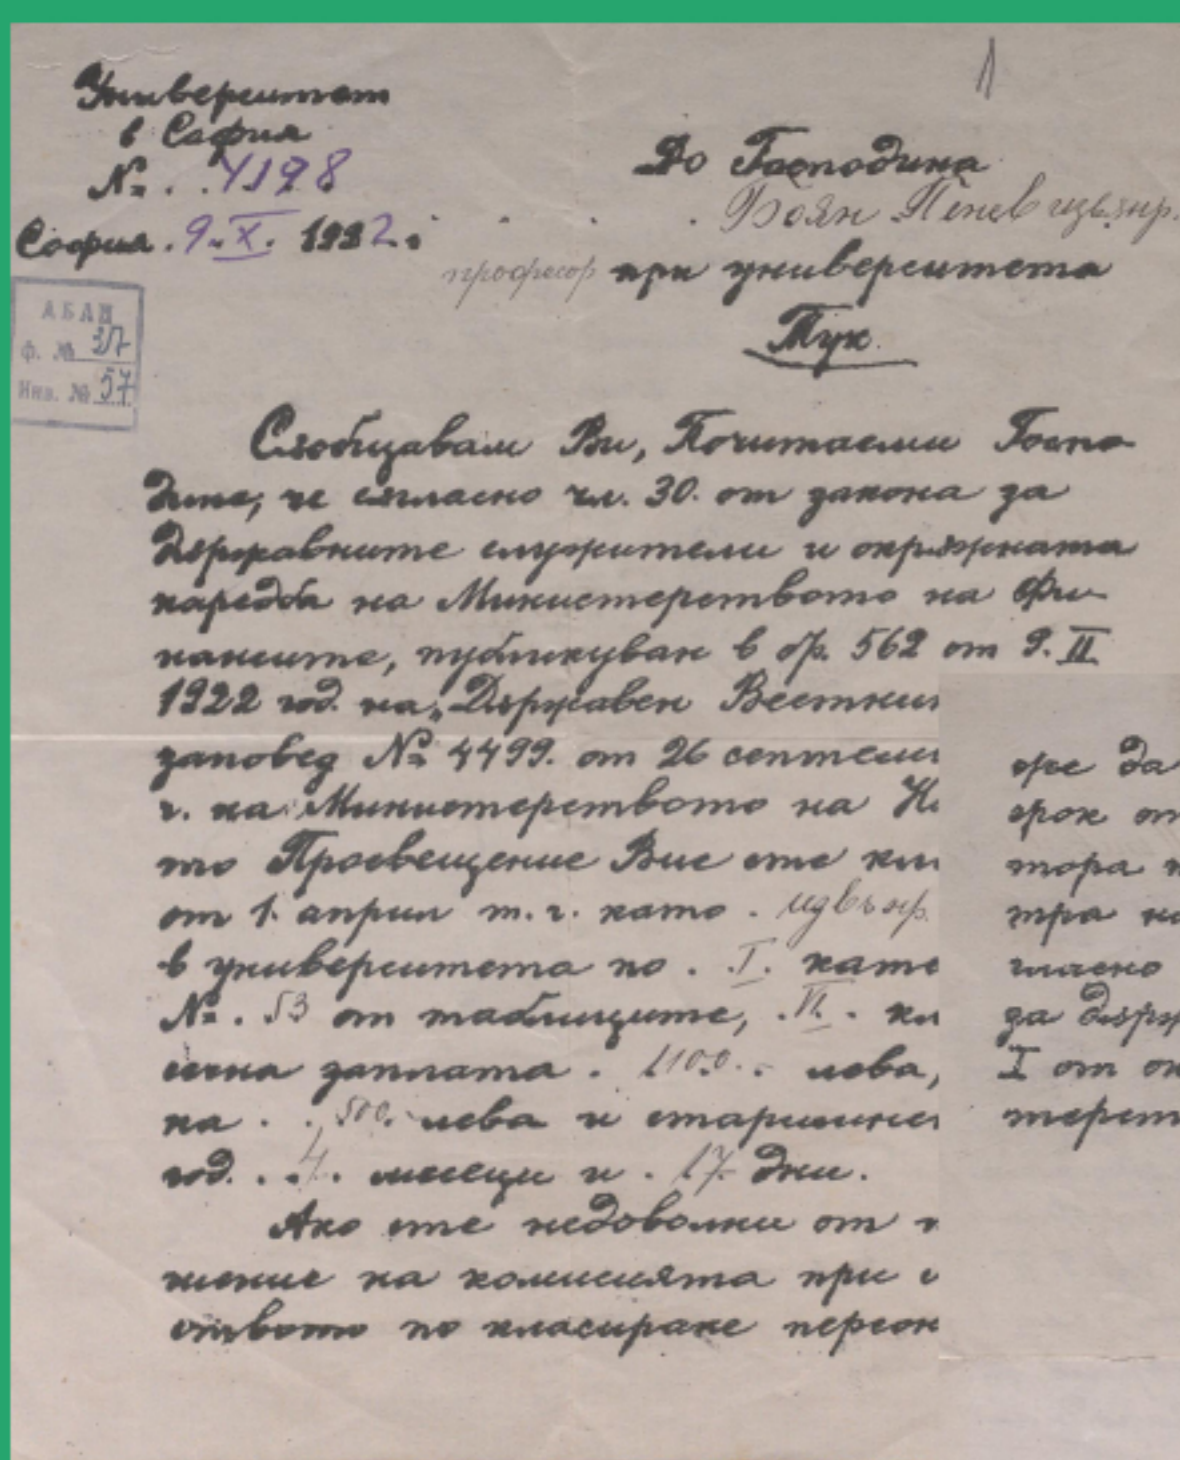 1
Университет
в София
№. . 4198
София. 9. X. 1922.
До Господина
Боян Пенев извънр.
професор при университета
Тук.
АБАН
Ф. № 37
Инв. № 57
Съобщавам Ви, Почитаеми Госпо-
дине, че съгласно чл. 30. от закона за
държавните служители и окръжната
наредба на Министерството на Фи-
нансите, публикуван в бр. 562 от 9. II
1922 год. на „Държавен Вестник
заповед № 4499. от 26 септем
г. на Министерството на На
то Просвещение Вие сте кла
от 1. април т. г. като . извънр.
в университета по . . I . кате
№. 53 от таблиците, . VI. . кл
сечна заплата . 1100. . лева,
на . . 500. лева и старшинс
год. . . 4. месеци и . 17 дни.
Ако сте недоволни от
шение на комисията при
ството по класиране персон
же да
срок от
тора
тра на
гласно
за държ
I от ок
терст